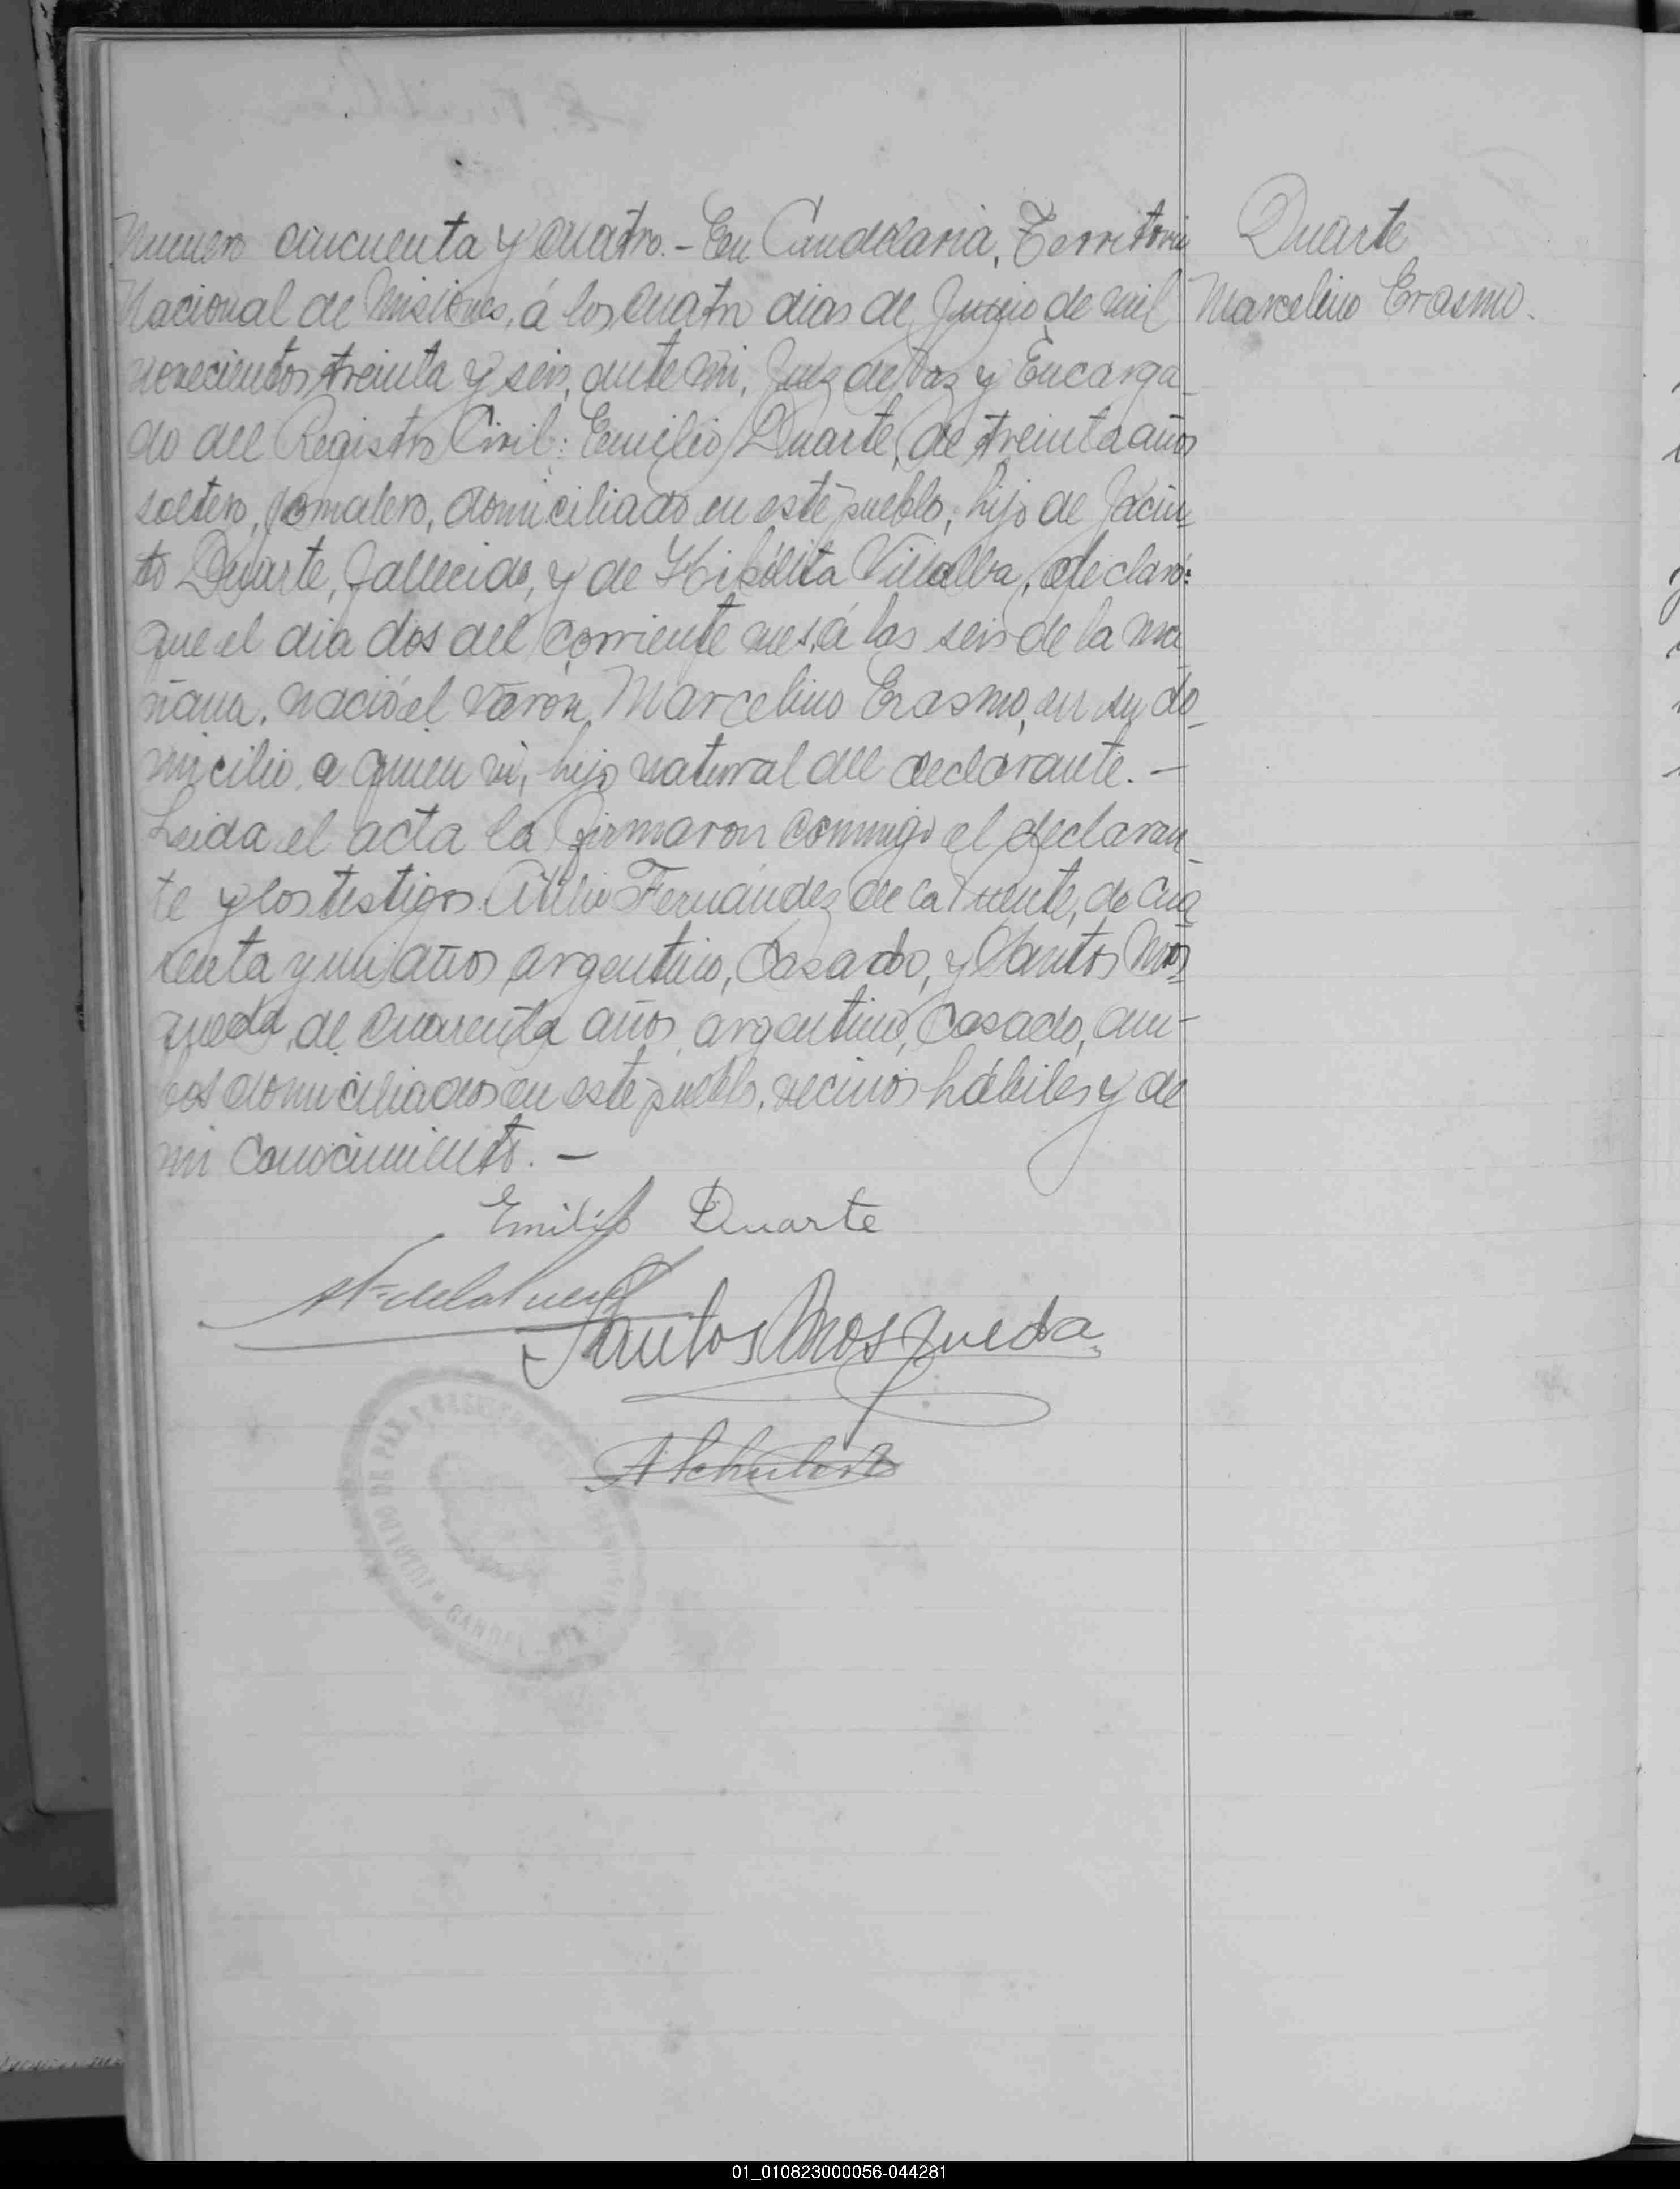 Duarte
Marcelino Erasmo.
Numero cincuenta y cuatro. - En Candelaria, Territorio
Nacional de Misiones, á los cuatro dias de Junio de mil
novecientos treinta y seis, ante mi, Juez de Paz y Encarga-
do del Registro Civil: Emilio Duarte, de treinta años
soltero, jornalero, domiciliado en este pueblo; hijo de Jacin-
to Duarte, fallecido, y de Hipólita Villalba, declaró:
que el dia dos del corriente mes, á las seis de la ma-
ñana, nació el varón Marcelino Erasmo, en su do-
micilio, a quien vi, hijo natural del declarante. -
Leida el acta la firmaron conmigo el declaran-
te y los testigos Atilio Fernández de la Puente, de cua-
renta y un años argentino, casado, y Santos Mos-
queda, de cuarenta años, argentino, casado, am-
bos domiciliados en este pueblo, vecinos hábiles y de
mi conocimiento. -
Emilio Duarte
A F. de la Puente
Santos Mosqueda
JUZGADO DE PAZ Y
01_010823000056-044281